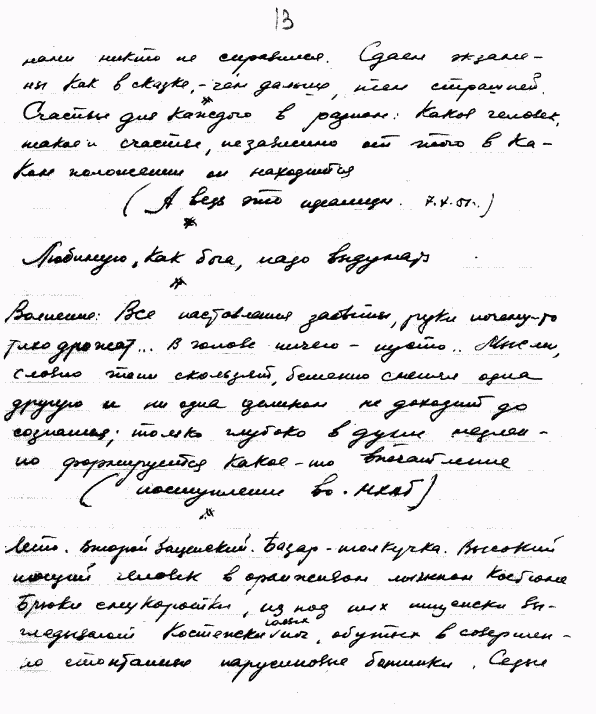 13
нами никто не справился. Сдаем экзаме-
ны как в сказке, - чем дальше, тем страшней.
*
Счастье для каждого в разном: Какой человек,
такое и счастье, независимо от того в ка-
ком положении он находится
(А ведь это идеализм. 7.X.51.)
*
Любимую, как бога, надо выдумать
*
Волнение: Все наставления забыты, руки почему-то
дрожат... В голове ничего - пусто.. Мысли,
словно тени скользят, бешенно сменяя одна
другую и ни одна целиком не доходит до
сознания; только глубоко в душе медлен-
но формируется какое-то впечатление
(поступление во МХАТ)
*
Лето. Базар - толкучка. Высокий
тощий человек в оранжевом лыжном костюме
Брюки коротки, из под них нищенски вы-
глядывают голых ног, обутых в совершен-
но стоптанные парусиновые ботинки. Седые